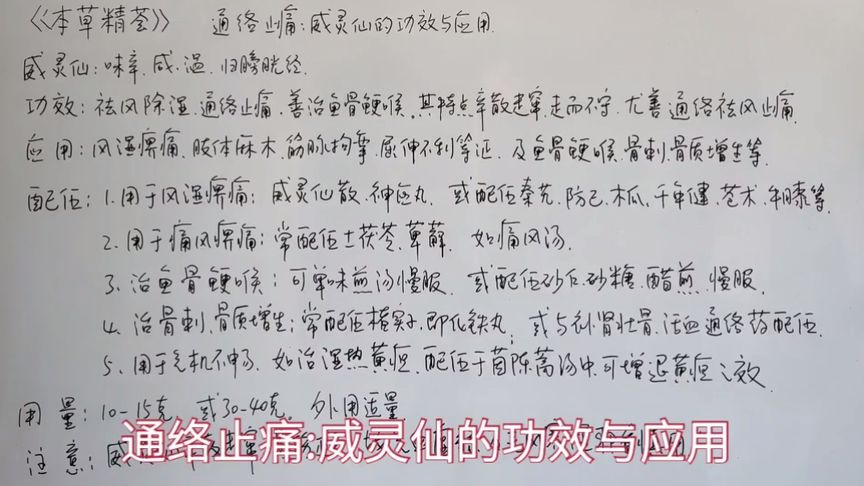 《本草精荟》 通络止痛:威灵仙的功效与应用.
威灵仙:味辛.咸.温.归膀胱经.
功效:祛风除湿.通络止痛.善治鱼骨鲠喉.其特点辛散走窜.走而不守.尤善通络祛风止痛.
应用:风湿痹痛.肢体麻木.筋脉拘挛.屈伸不利等证.及鱼骨鲠喉.骨刺.骨质增生等.
配伍:1.用于风湿痹痛:威灵仙散.神应丸.或配伍秦艽.防己.木瓜.千年健.苍术.牛膝等.
2.用于痛风痹痛:常配伍土茯苓.萆薢.如痛风汤.
3.治鱼骨鲠喉:可单味煎汤慢服.或配伍砂仁.砂糖.醋煎.慢服.
4.治骨刺.骨质增生:常配伍楮实子.即化铁丸;或与补肾壮骨.活血通络药配伍.
5.用于气机不伸方.如治湿热黄疸.配伍于茵陈蒿汤中.可增退黄疸之效.
用量:10-15克.或30-40克.外用适量
注意:威
通络止痛:威灵仙的功效与应用